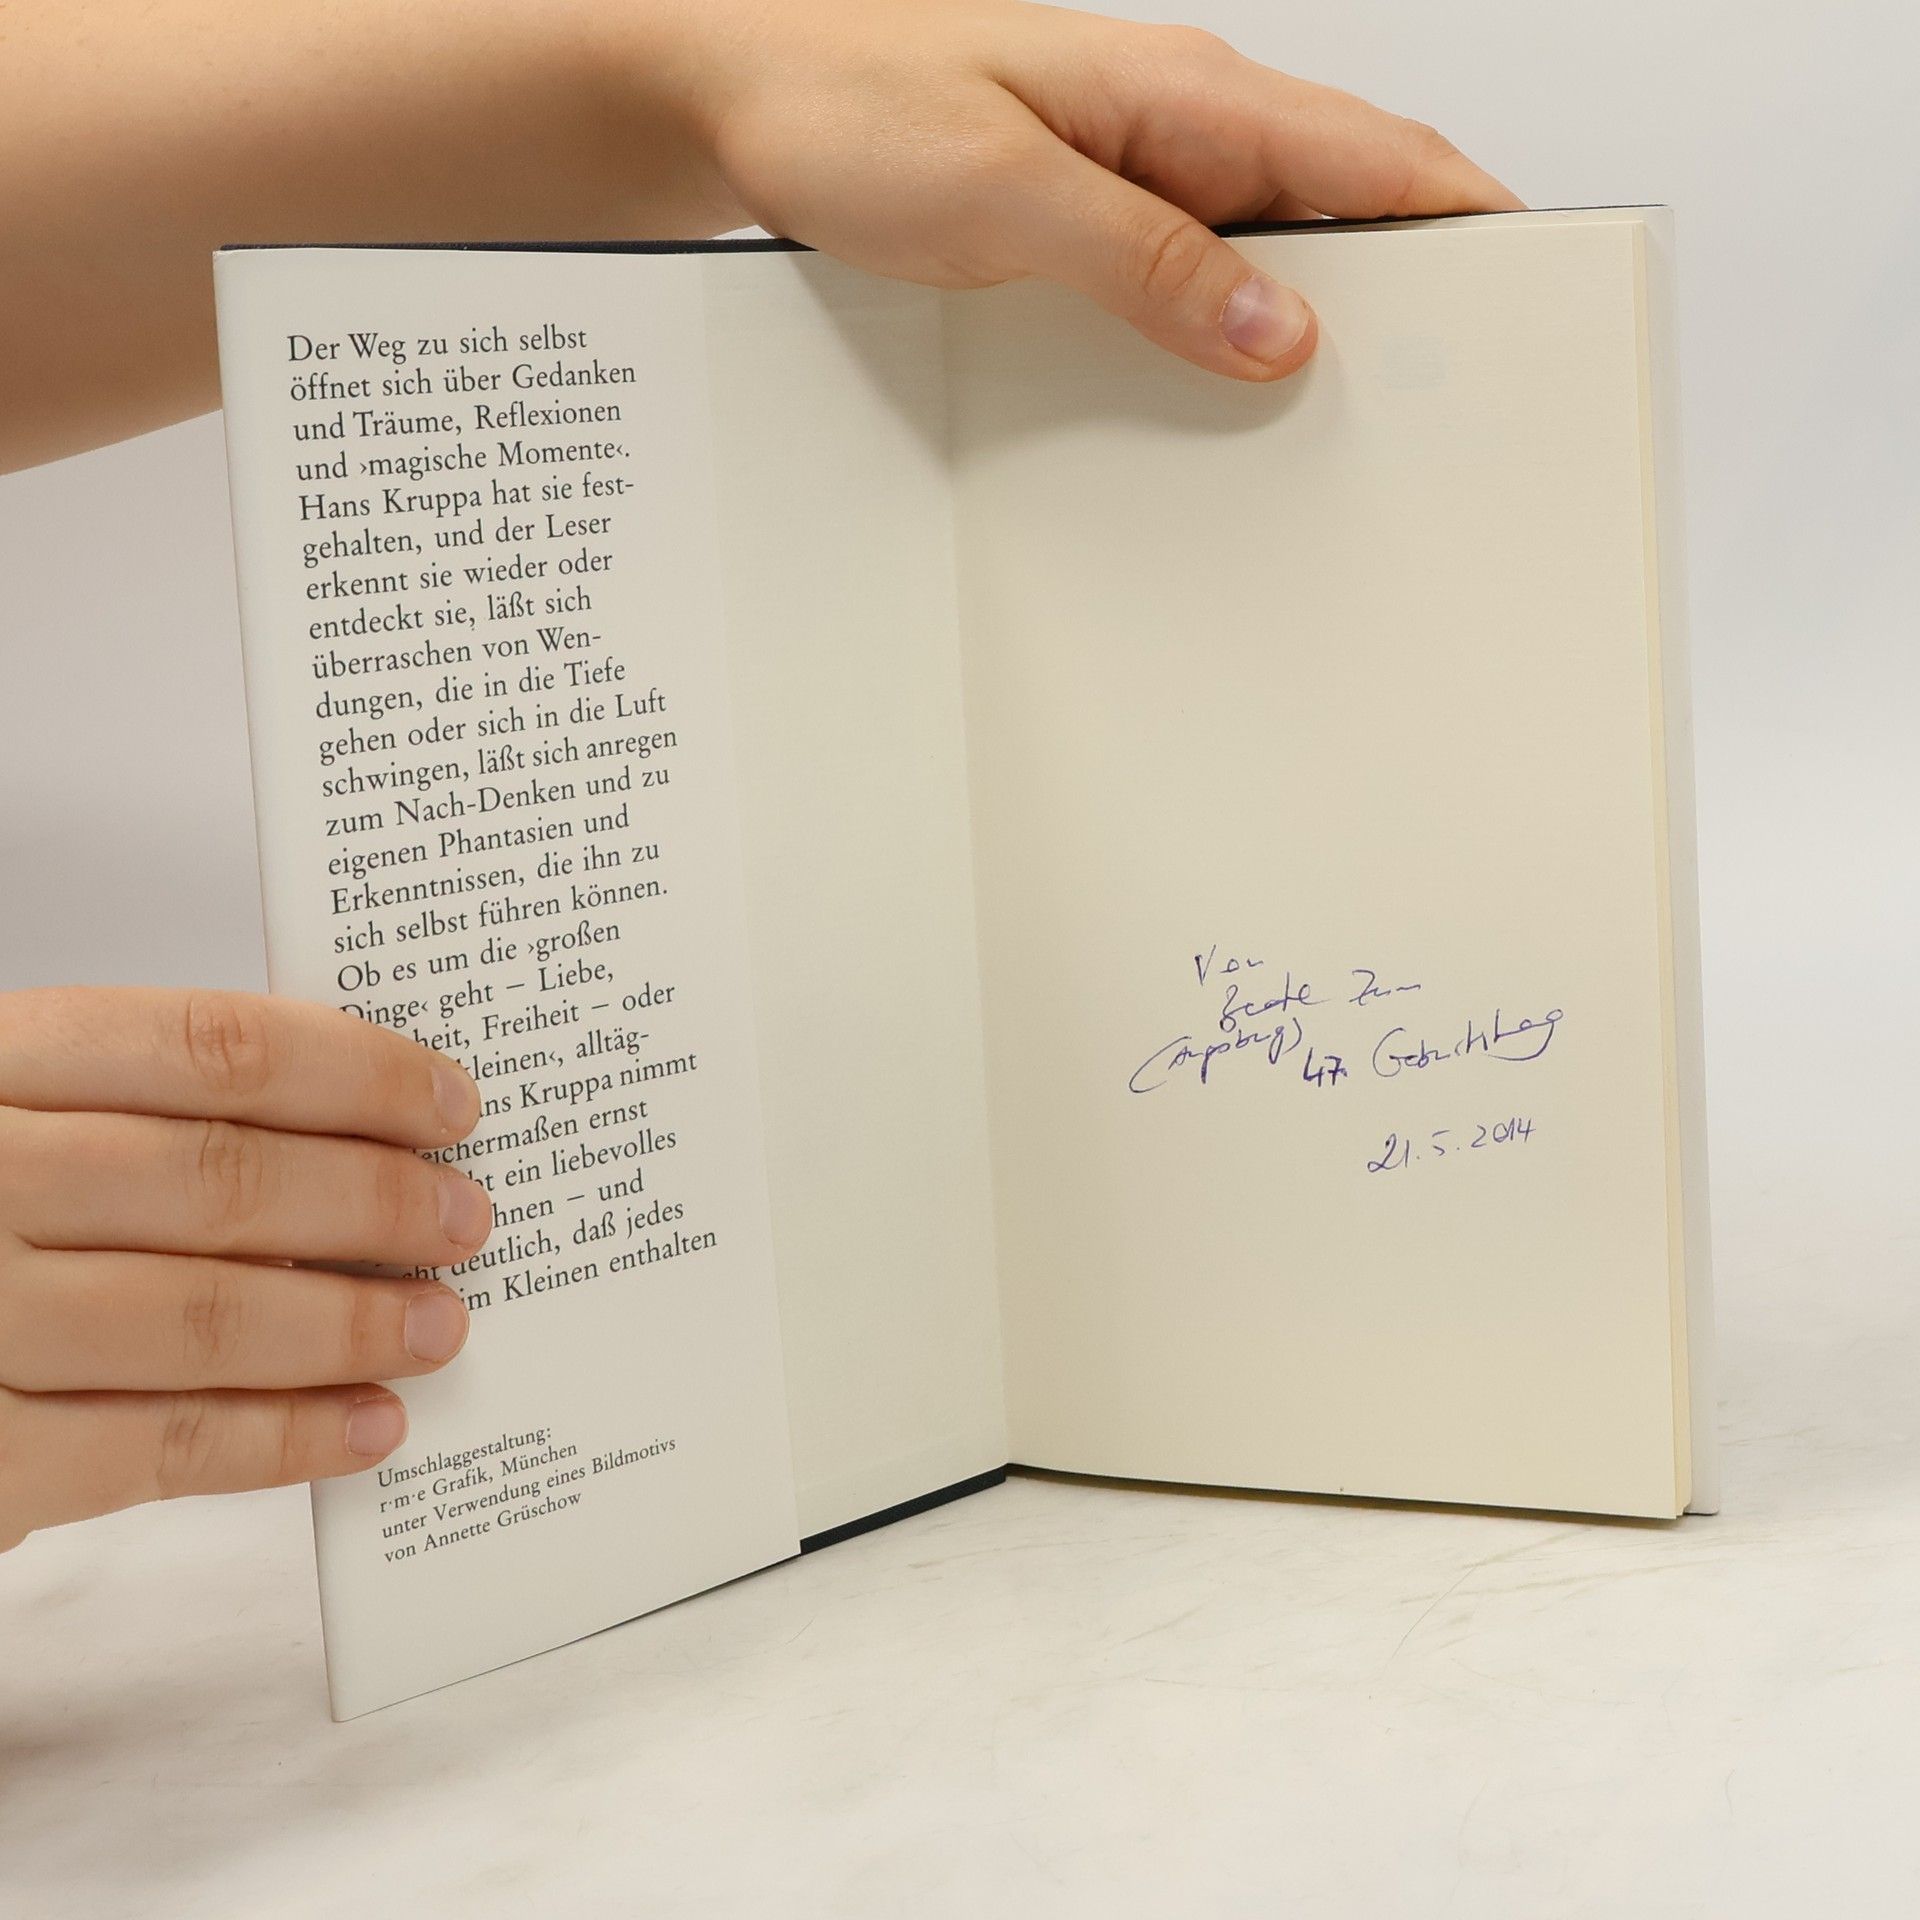 Der Weg zu sich selbst
öffnet sich über Gedanken
und Träume, Reflexionen
und ›magische Momente‹.
Hans Kruppa hat sie fest-
gehalten, und der Leser
erkennt sie wieder oder
entdeckt sie, läßt sich
überraschen von Wen-
dungen, die in die Tiefe
gehen oder sich in die Luft
schwingen, läßt sich anregen
zum Nach-Denken und zu
eigenen Phantasien und
Erkenntnissen, die ihn zu
sich selbst führen können.
Ob es um die ›großen
Dinge‹ geht – Liebe,
heit, Freiheit – oder
kleinen‹, alltäg-
ns Kruppa nimmt
eichermaßen ernst
ht ein liebevolles
hnen – und
cht deutlich, daß jedes
im Kleinen enthalten
Umschlaggestaltung:
r·m·e Grafik, München
unter Verwendung eines Bildmotivs
von Annette Grüschow
Von
Beate zum
(Augsburg) 47. Geburtstag
21.5.2014